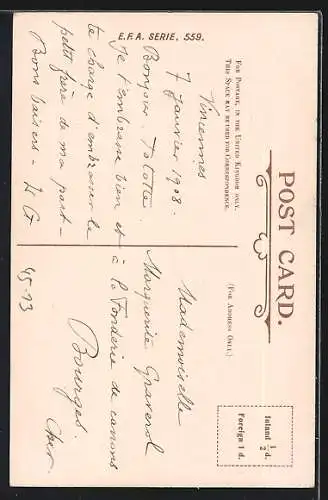 E.F.A. SERIE, 559.
POST CARD.
FOR POSTAGE, IN THE UNITED KINGDOM ONLY,
THIS SPACE MAY BE USED FOR CORRESPONDENCE.
(FOR ADDRESS ONLY.)
Inland ½ d.
Foreign 1 d.
Vincennes
7 Janvier 1908.
Bonjour Tototte.
Je t'embrasse bien et
te charge d'embrasser le
petit frère de ma part -
Bons baisers -
Mademoiselle
Marguerite Graverol
à la Fonderie de canons
Bourges.
Cher
45.93